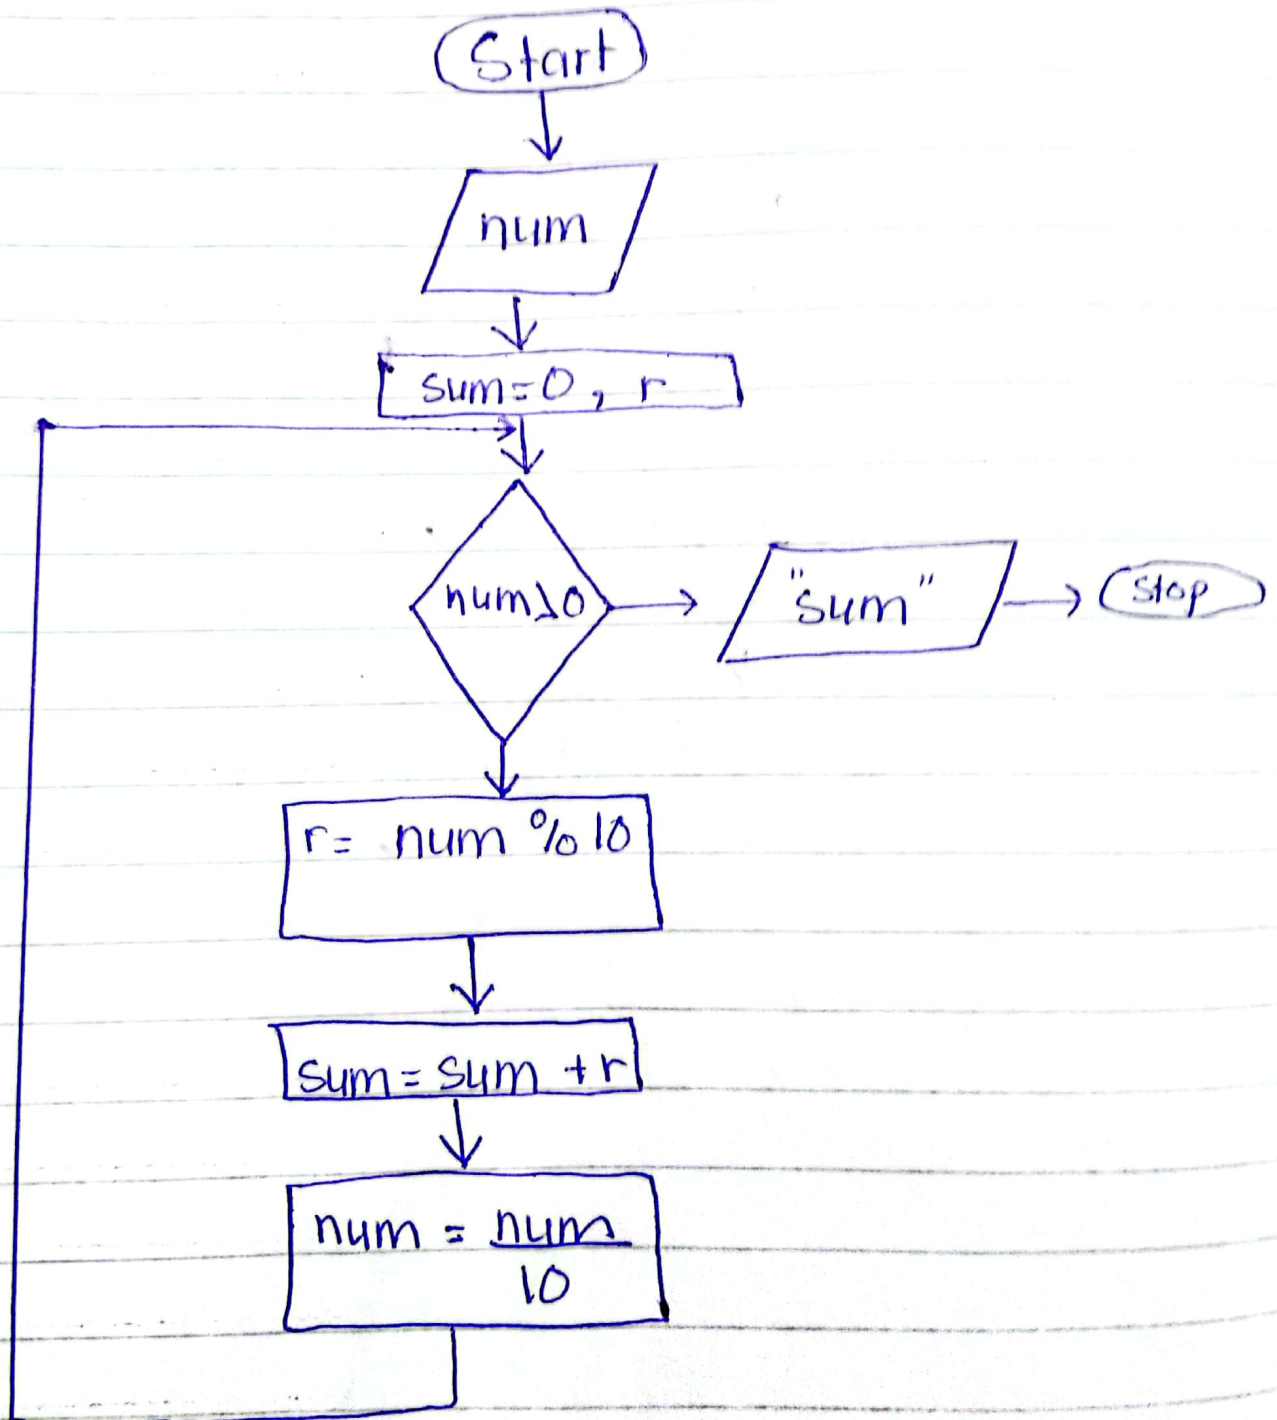 Start
num
sum=0, r
num>0
"sum"
stop
r= num % 10
sum=sum +r
num = num
10